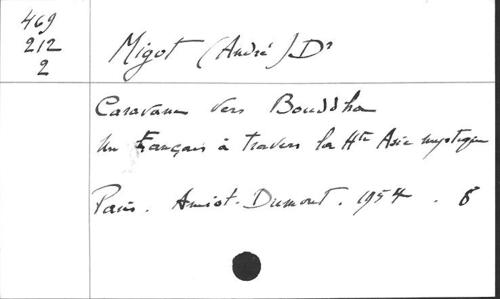 469
212
2
Migot (André) Dr
Caravane vers Bouddha
Un Français à travers la Hte Asie mystique
Paris. Amiot-Dumont. 1954. 8